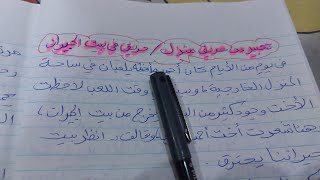 تعبير عن حريق منزل / حريق في بيت الجيران
في يوم من الأيام كان أحمد وأخته يلعبان في ساحة
المنزل الخارجية وقت اللعب لاحظت
الأخت وجود كثير من يخرج من بيت الجيران،
وهنا شعرت أخت أحمد وقالت: انظر بيت
جيراننا يحترق